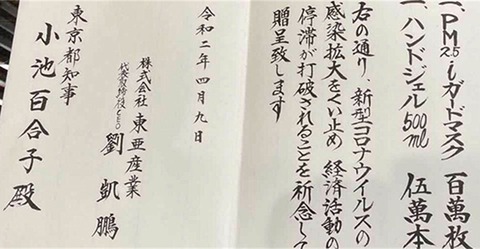 一、PM2.5iガードマスク 百萬枚
一、ハンドジェル500ml 伍萬本
右の通り、新型コロナウイルスの
感染拡大をくい止め 経済活動の
停滞が打破されることを祈念して
贈呈致します
令和二年四月九日
株式会社東亜産業
代表取締役CEO 劉凱鵬
東京都知事
小池百合子殿